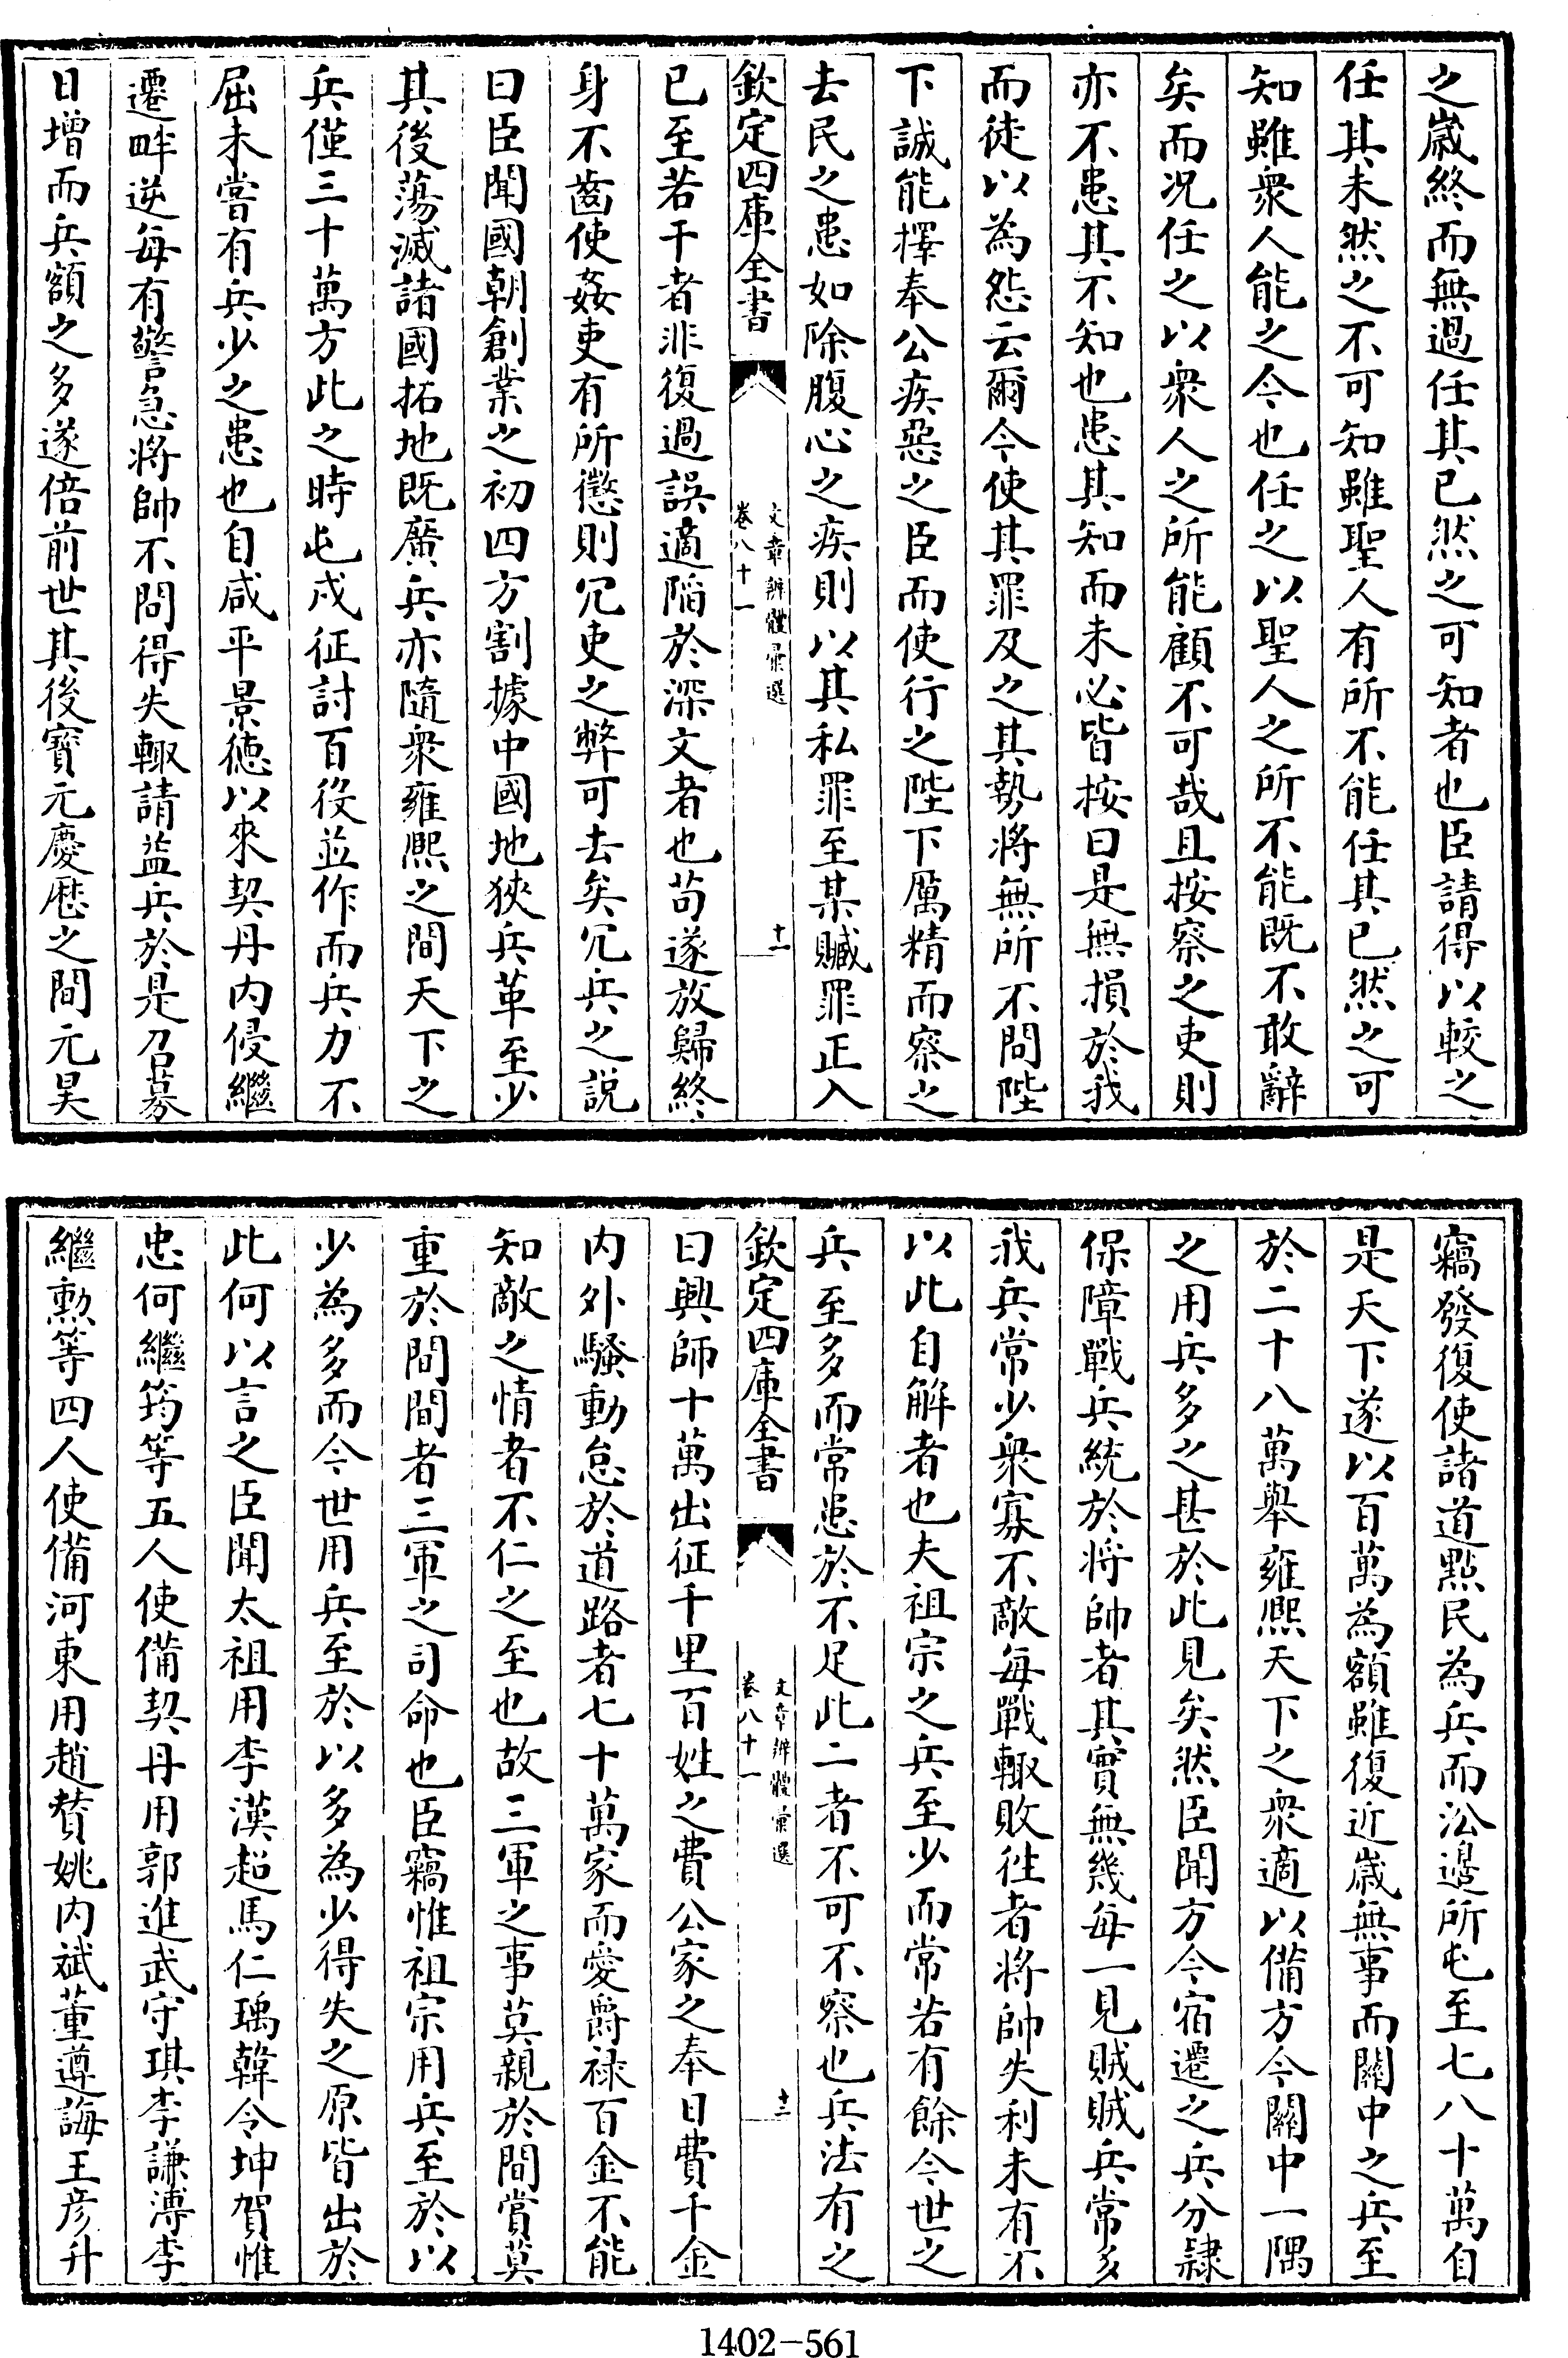 之歳終而無過任其已然之可知者也臣請得以較之
任其未然之不可知雖聖人有所不能任其已然之可
知雖衆人能之今也任之以聖人之所不能既不敢辭
矣而况任之以衆人之所能顧不可哉且按察之吏則
亦不患其不知也患其知而未必皆按曰是無損於我
而徒以為怨云爾今使其罪及之其勢將無所不問陛
下誠能擇奉公疾惡之臣而使行之陛下厲精而察之
去民之患如除腹心之疾則以其私罪至某贓罪正入
欽定四庫全書
文章辨體彚選
卷八十一
十一
已至若干者非復過誤適陷於深文者也苟遂放歸終
身不齒使姦吏有所懲則冗吏之弊可去矣冗兵之説
曰臣聞國朝創業之初四方割據中國地狹兵革至少
其後蕩滅諸國拓地既廣兵亦隨衆雍熙之間天下之
兵僅三十萬方此之時屯戍征討百役並作而兵力不
屈未嘗有兵少之患也自咸平景徳以來契丹内侵繼
遷畔逆每有警急將帥不問得失輙請益兵於是召募
日增而兵額之多遂倍前世其後寳元慶厯之間元昊
竊發復使諸道㸃民為兵而㳂邊所屯至七八十萬自
是天下遂以百萬為額雖復近歳無事而關中之兵至
於二十八萬舉雍熙天下之衆適以備方今關中一隅
之用兵多之甚於此見矣然臣聞方今宿遷之兵分隷
保障戰兵統於將帥者其實無幾每一見賊賊兵常多
我兵常少衆寡不敵每戰輙敗徃者將帥失利未有不
以此自解者也夫祖宗之兵至少而常若有餘今世之
兵至多而常患於不足此二者不可不察也兵法有之
欽定四庫全書
文章辨體彚選
卷八十一
十二
曰興師十萬出征千里百姓之費公家之奉日費千金
内外騷動怠於道路者七十萬家而愛爵禄百金不能
知敵之情者不仁之至也故三軍之事莫親於間賞莫
重於間間者三軍之司命也臣竊惟祖宗用兵至於以
少為多而今世用兵至於以多為少得失之原皆出於
此何以言之臣聞太祖用李漢超馬仁瑀韓令坤賀惟
忠何繼筠等五人使備契丹用郭進武守琪李謙溥李
繼勲等四人使備河東用趙贊姚内斌董遵誨王彦升
1402-561